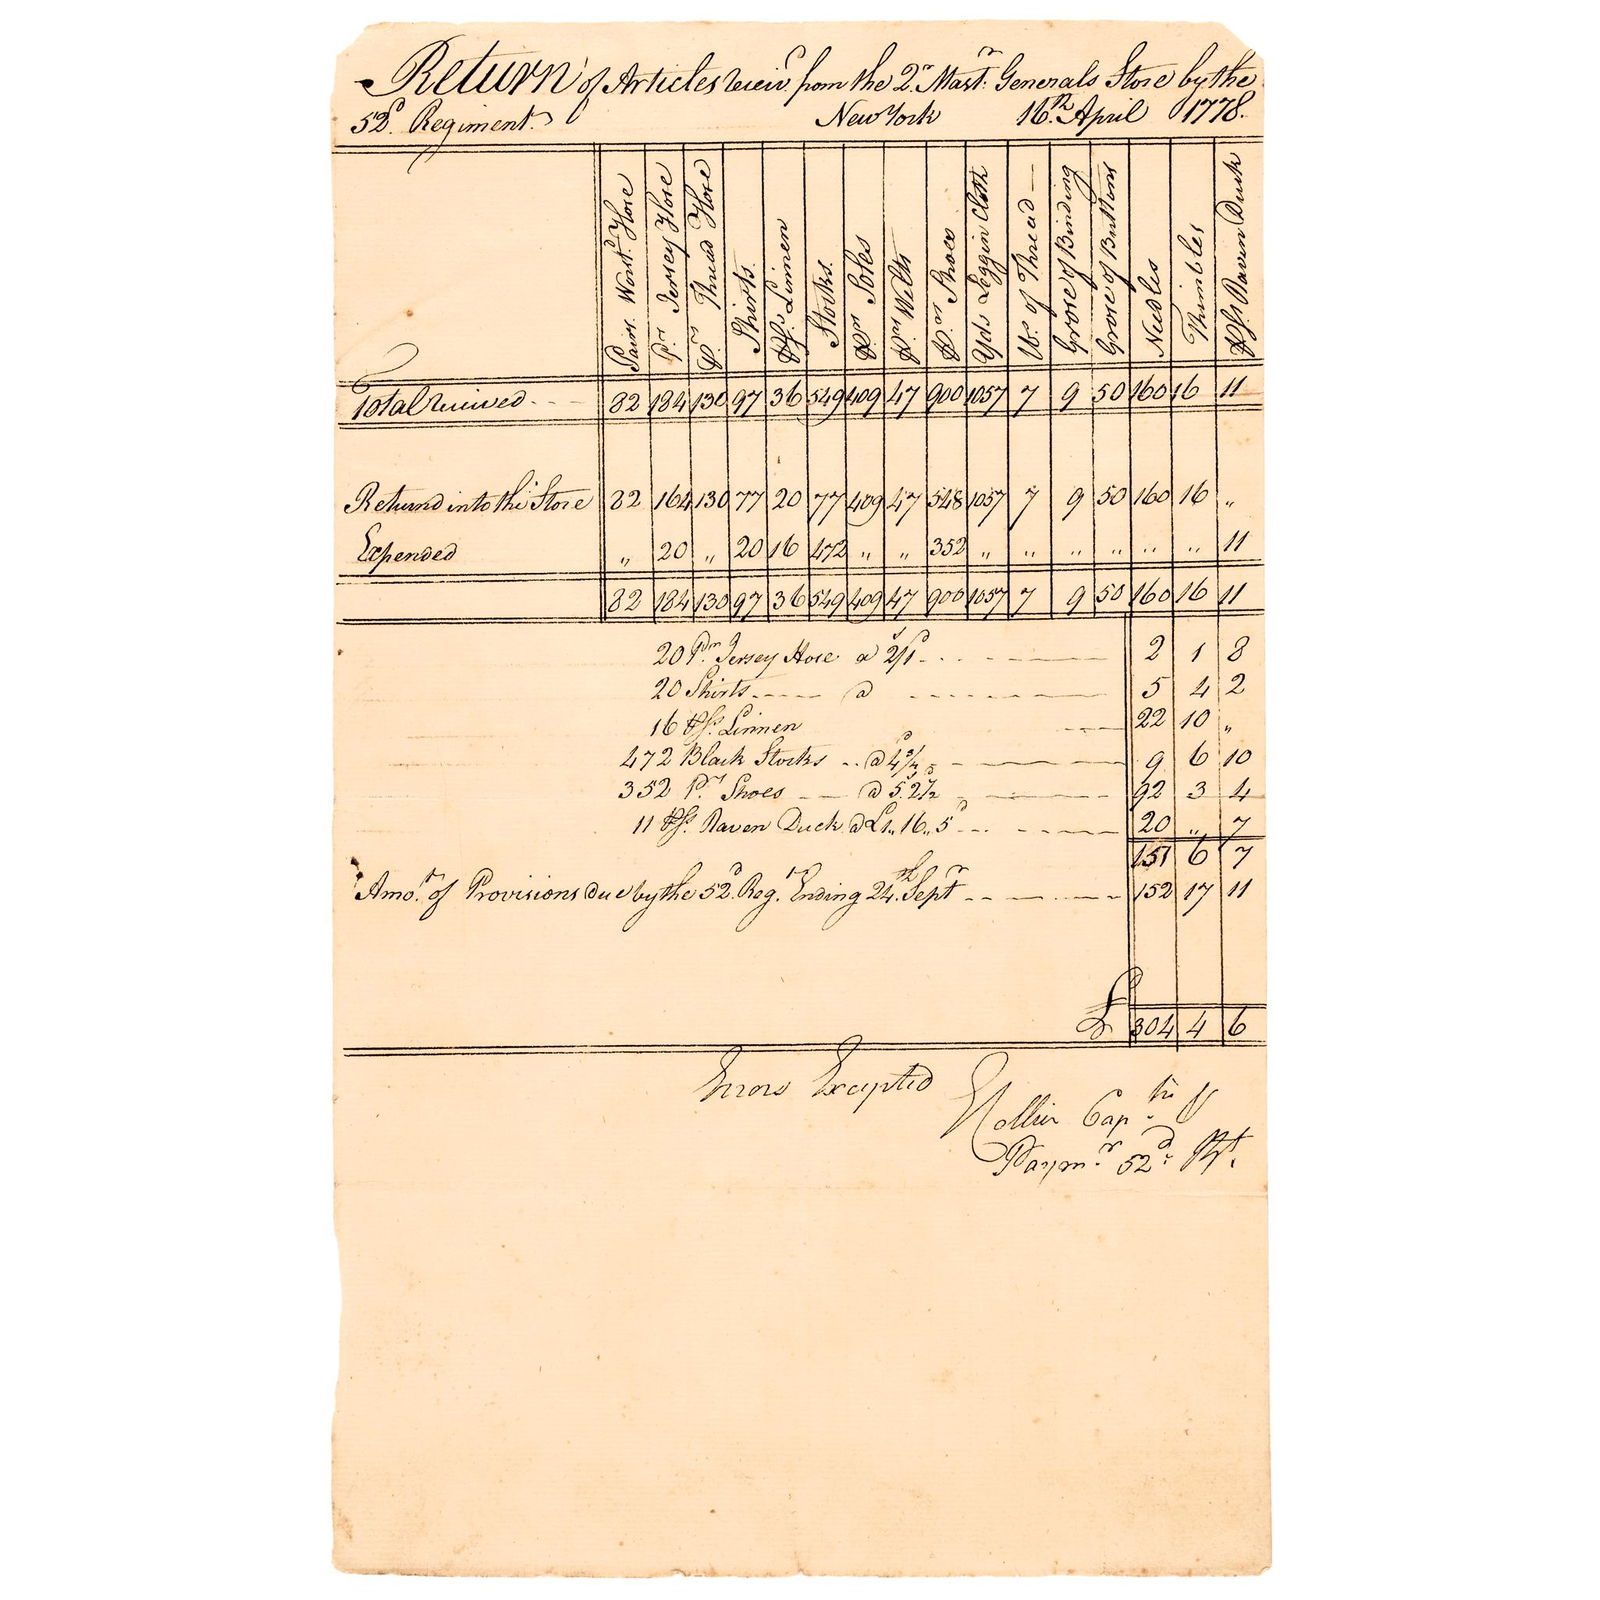 Return of Articles receiv.d from the Qr. Mastr. Generals Store by the
52d. Regiment. New York 16th. April 1778.
Pairs Worst.d Hose
Pr. Jersey Hose
Prs. Thread Hose
Shirts.
Ps. Linnen
Stocks.
Prs. Soles
Prs. Welts
Prs. Shoes
Yds. Leggin Cloth
lbs. of Thread
Grose of Binding
Grose of Buttons
Needles
Thimbles
Ps. Raven Duck
Total received - - - 82 184 130 97 36 549 409 47 900 1057 7 9 50 160 16 11
Returnd into the Store 82 164 130 77 20 77 409 47 548 1057 7 9 50 160 16 "
Expended " 20 " 20 16 472 " " 352 " " " " " " 11
82 184 130 97 36 549 409 47 900 1057 7 9 50 160 16 11
20 Prs. Jersey Hose a 2s/1d - - - 2 1 8
20 Shirts - - - a - - - 5 4 2
16 Ps. Linnen - - - 22 10 "
472 Black Stocks - - a 4d 3/4 - - - 9 6 10
352 Pr. Shoes - - a 5s.2d 1/2 - - - 92 3 4
11 Ps. Raven Duck a £1,,16,,5d - - - 20 " 7
151 6 7
Amot. of Provisions due by the 52d. Regt. Ending 24th. Septr - - - 152 17 11
£ 304 4 6
Errors Excepted
Collier Capt.
Paymr. 52d. Regt.